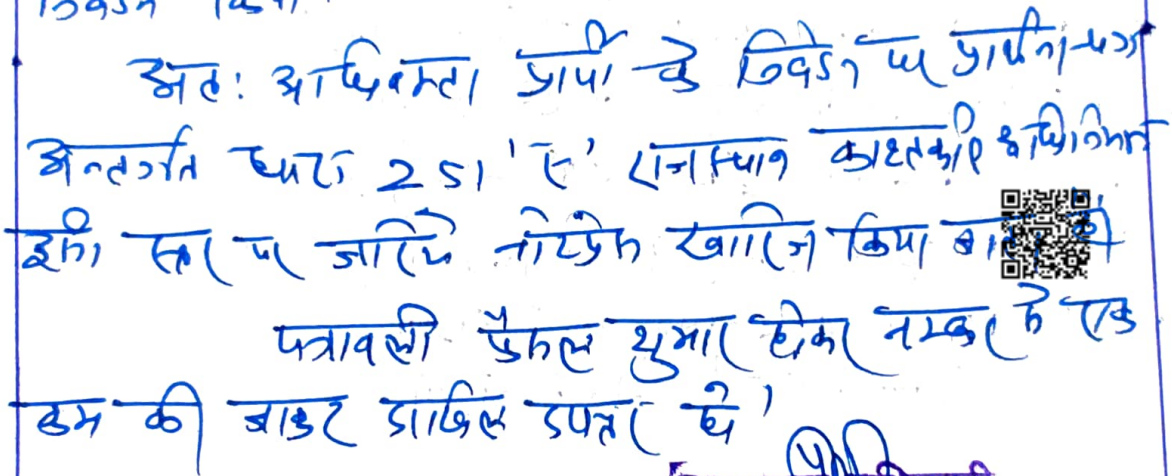 निवेदन किया
अतः अधिवक्ता प्रार्थी के निवेदन पर प्रार्थना-पत्र
अन्तर्गत धारा 251 'ए' राजस्थान काश्तकारी अधिनियम
इसी स्तर पर जरिये नोटप्रेस खारिज किया जाता
पत्रावली फैसल शुमार होकर नम्बर से एक
कम की जाकर दाखिल दफ्तर हो